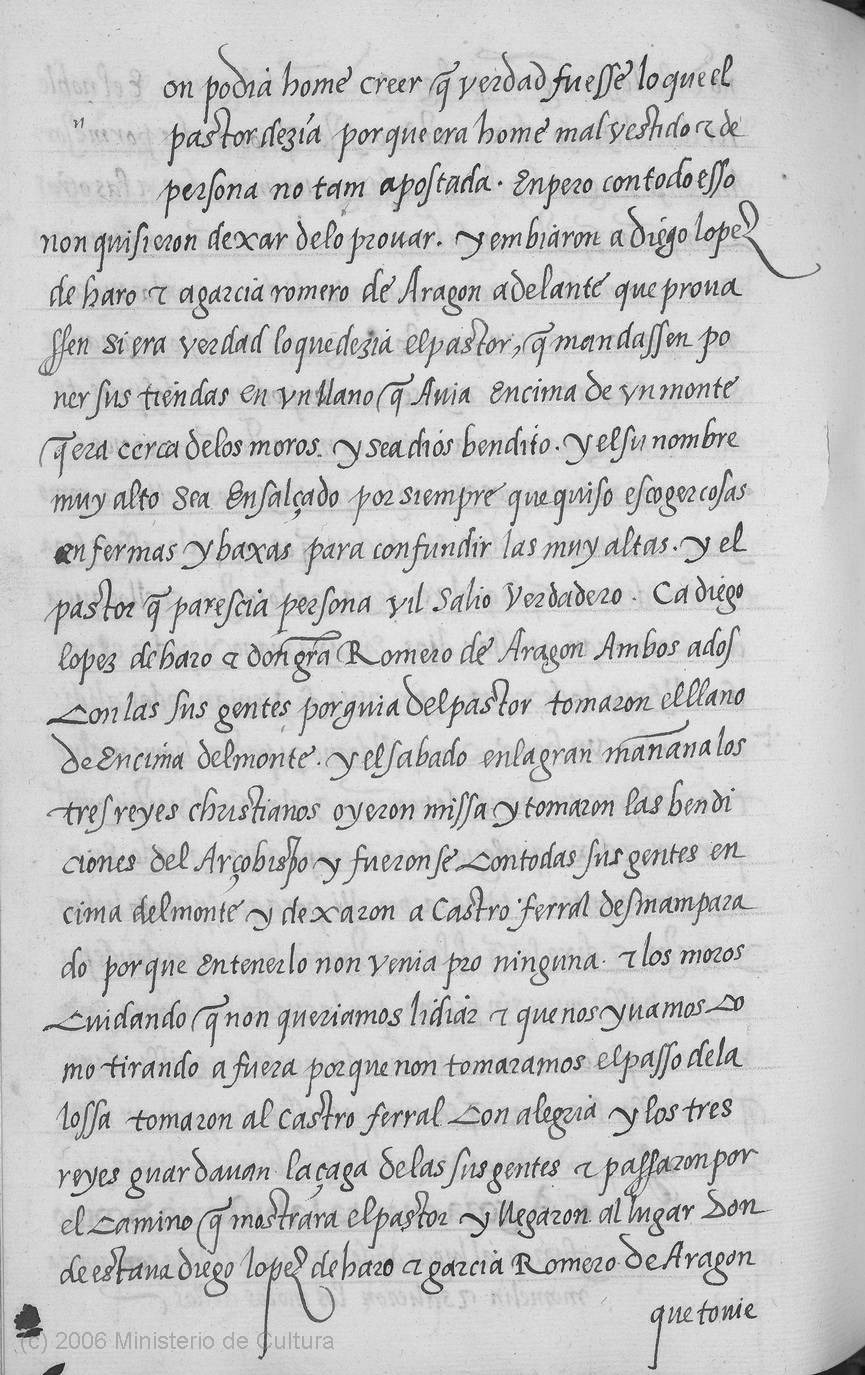 on podia home creer q̃ verdad fuesse lo que el
n
pastor dezia porque era home mal vestido ⁊ de
persona no tam apostada. Enpero con todo esso
non quisieron dexar de lo provar. y embiaron a diego lopez
de haro ⁊ a garcia romero de Aragon adelante que prova
ssen si era verdad lo que dezia el pastor, q̃ mandassen po
ner sus tiendas en vn llano q̃ Auia Encima de vn monte
q̃ era cerca de los moros. y sea dios bendito. y el su nombre
muy alto sea Ensalçado por siempre que quiso escoger cosas
enfermas y baxas para confundir las muy altas. y el
pastor q̃ parescia persona vil salio verdadero. Ca diego
lopez de haro ⁊ don gr̃a Romero de Aragon Ambos ados
Con las sus gentes por guia del pastor tomaron el llano
de Encima del monte. y el sabado en la gran mañana los
tres reyes christianos oyeron missa y tomaron las bendi
ciones del Arçobispo y fueronse Con todas sus gentes en
cima del monte y dexaron a Castro ferral desmampara
do porque Entenerlo non venia pro ninguna. ⁊ los moros
Cuidando q̃ non queriamos lidiar ⁊ que nos yuamos Co
mo tirando a fuera porque non tomaramos el passo de la
lossa tomaron al Castro ferral Con alegria y los tres
reyes guardauan la çaga de las sus gentes ⁊ passaron por
el Camino q̃ mostrara el pastor y llegaron al lugar Don
de estaua diego lopez de haro ⁊ garcia Romero de Aragon
que touie
(c) 2006 Ministerio de Cultura